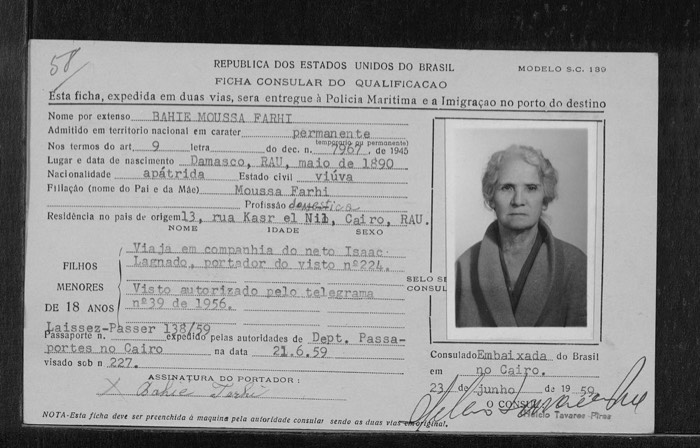 58
REPUBLICA DOS ESTADOS UNIDOS DO BRASIL
MODELO S.C. 139
FICHA CONSULAR DO QUALIFICACAO
Esta ficha, expedida em duas vias, sera entregue à Policia Maritima e a Imigraçao no porto do destino
Nome por extenso BAHIE MOUSSA FARHI
Admitido em territorio nacional em carater permanente
temporario ou permanente)
Nos termos do art. 9 letra do dec. n. 7967, de 1945
Lugar e data de nascimento Damasco, RAU, maio de 1890
Nacionalidade apátrida Estado civil viúva
Filiação (nome do Pai e da Mãe) Moussa Farhi
Profissão domestica
Residência no pais de origem 13, rua Kasr el Nil, Cairo, RAU.
NOME IDADE SEXO
FILHOS
MENORES
DE 18 ANOS
Viaja em companhia do neto Isaac
Lagnado, portador do visto nº224.
Visto autorizado pelo telegrama
nº39 de 1956.
SELO SE
CONSUL
Laissez-Passer 138/59
Passaporte n. expedido pelas autoridades de Dept. Passa-
portes no Cairo na data 21.6.59
visado sob n 227.
ASSINATURA DO PORTADOR :
X Bahie Ferhi
Consulado Embaixada do Brasil
em no Cairo.
23 de junho de 19 59
O CONSUL
Tavares Piros
NOTA-Esta ficha deve ser preenchida à maquina pela autoridade consular sendo as duas vias em original.